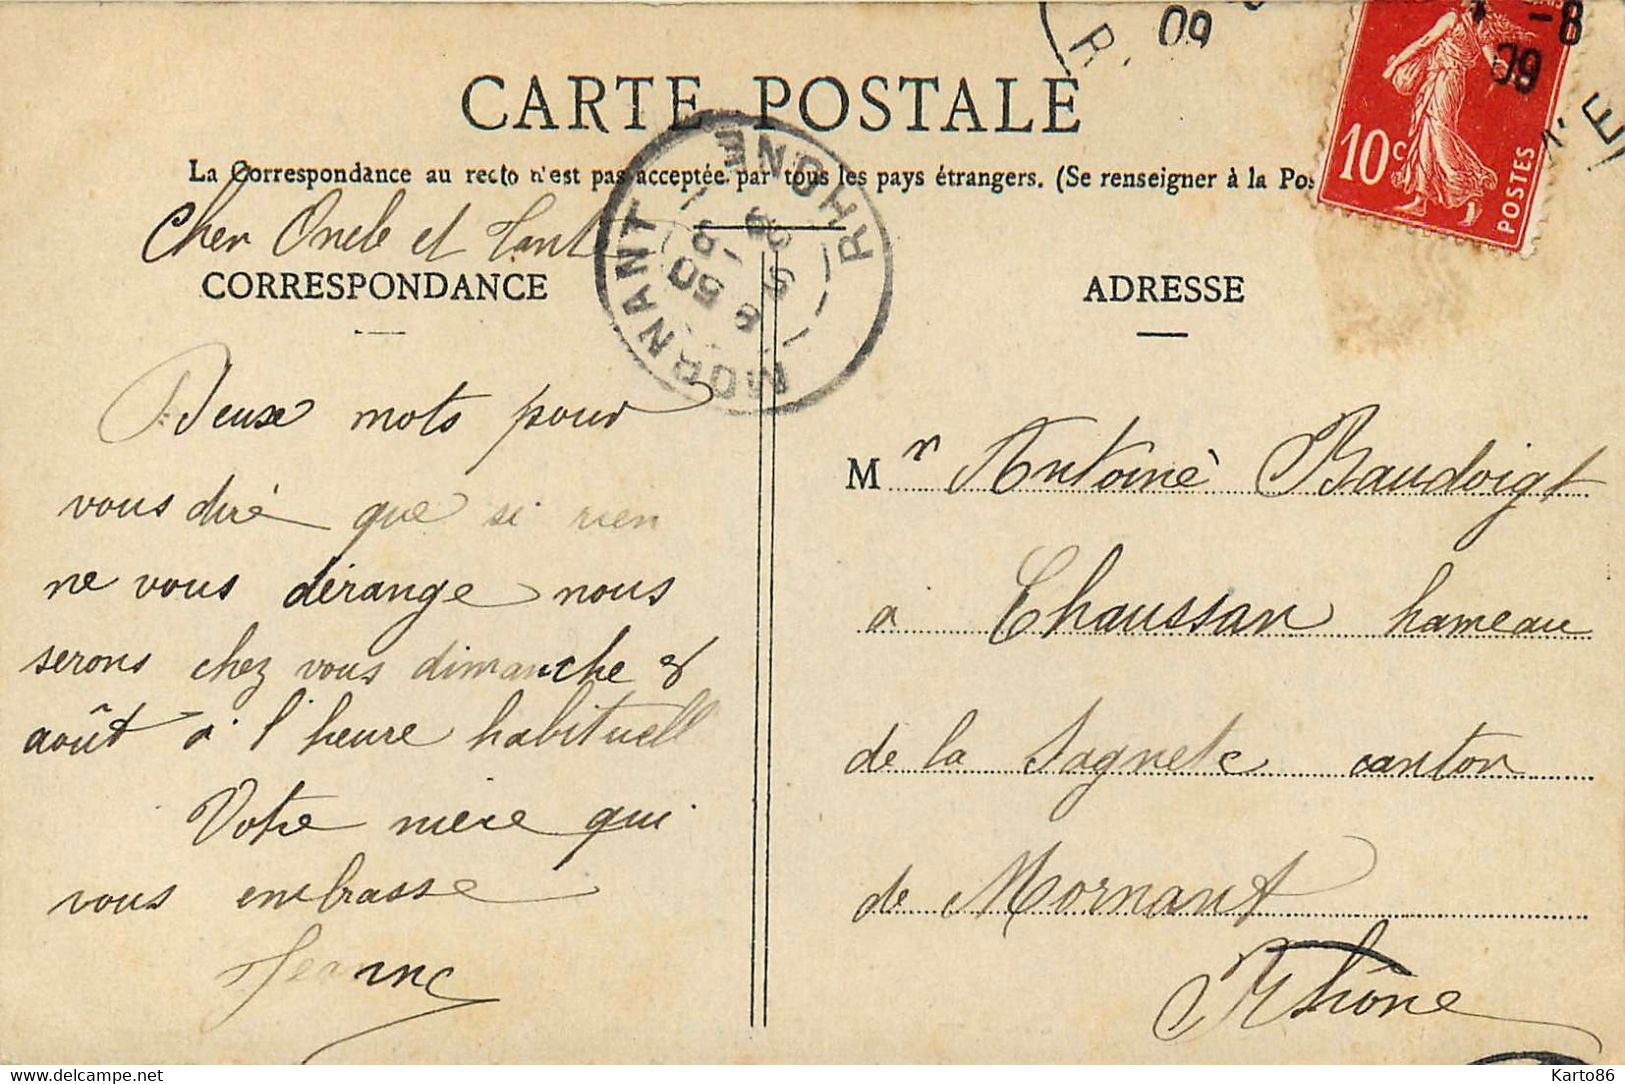 CARTE POSTALE
La Correspondance au recto n'est pas acceptée par tous les pays étrangers. (Se renseigner à la Pos
Cher Oncle et Tant
CORRESPONDANCE
Deux mots pour
vous dire que si rien
ne vous dérange nous
serons chez vous dimanche 8
août à l'heure habituell
Votre niece qui
vous embrasse
Jeanne
MORNANT
RHONE
8 50
5 - 8
09
ADRESSE
Mr Antoine Baudoigt
a Chaussan hameau
de la Sagnete canton
de Mornant
Rhône
09
R
-8
09
E
10c
POSTES
www.delcampe.net
Karto86